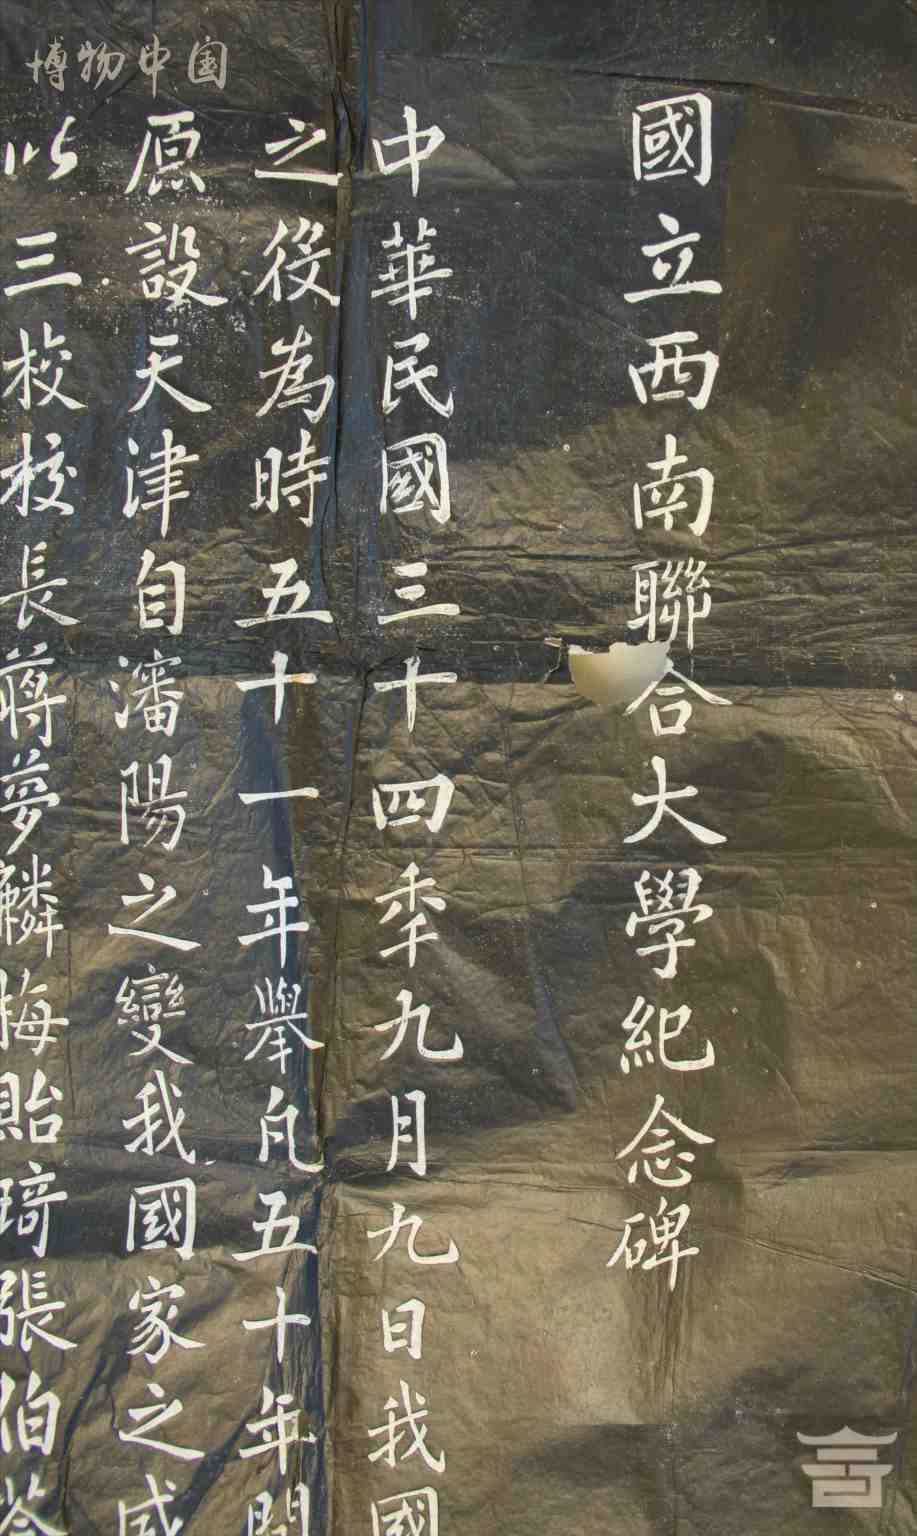 博物中国
國立西南聯合大學紀念碑
中華民國三十四秊九月九日我國
之役為時五十一年舉凡五十年間
原設天津自瀋陽之變我國家之威
以三校校長蔣夢麟梅貽琦張伯苓